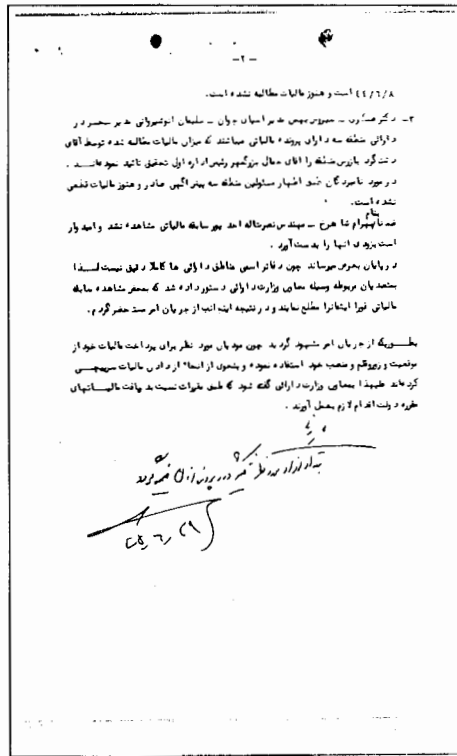 -۲-
۴۴/۶/۸ است و هنوز مالیات مطالبه نشده است.
۳- دکتر ... - سیروس بهمن مدیر آسیای جوان - سلیمان انوشیروانی مدیر سحر در
دارائی منطقه سه دارای پرونده مالیاتی میباشند که میزان مالیات مطالبه شده توسط آقای
دشت گرد بازرس منطقه را آقای جمال بزرگمهر رئیس اداره اول تحقیق تائید نموده‌اند.
در مورد نامبردگان طبق اظهار مسئولین منطقه سه پیش آگهی صادر و هنوز مالیات قطعی
نشده است.
ضمنا بنام بهرام شاهرخ - مهندس نصرت‌اله احد پور سابقه مالیاتی مشاهده نشد و امیدوار
است بزودی آنها را بدست آورد.
در پایان بعرض میرساند چون دفاتر اسمی مناطق دارائی ها کاملا دقیق نیست لـذا
بمتصدیان مربوطه وسیله معاون وزارت دارائی دستور داده شد که بمحض مشاهده سابقه
مالیاتی فورا ایشانرا مطلع نمایند و در نتیجه اینجانب از جریان امر مستحضر گردم.
بطـوریکه از جریان امر مشهود گردید چون مودیان مورد نظر برای پرداخت مالیات خود از
موقعیت و زیروقلم و منصب خود استفاده نموده و بنحوی از انحاء از دادن مالیات سرپیچـی
کرده‌اند علیهذا بمعاون وزارت دارائی گفته شود که طبق مقررات نسبت به دریافت مالیـاتهای
حقه دولت اقدام لازم بعمل آورند.
۴۵/۶/۲۹